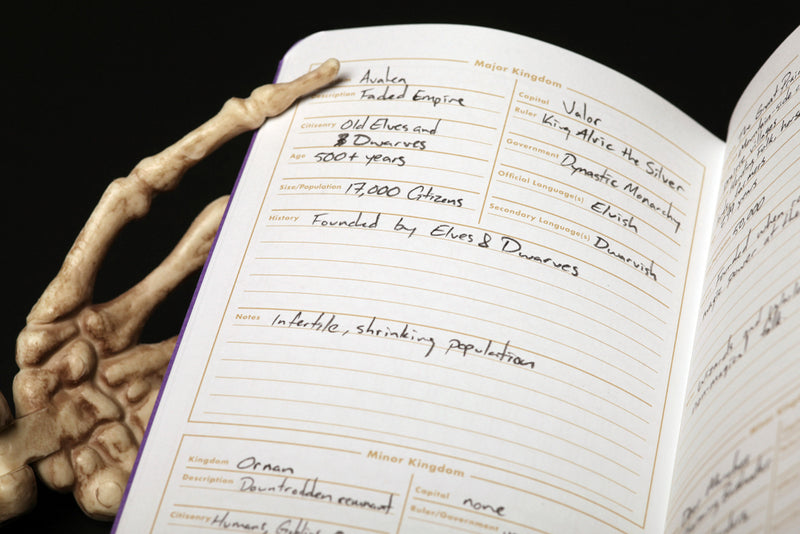 Major Kingdom
Avalen
Description Faded Empire
Citizenry Old Elves and
& Dwarves
Age 500+ years
Size/Population 17,000 Citizens
Capital Valor
Ruler King Alvic the Silver
Government Dynastic Monarchy
Official Language(s) Elvish
Secondary Language(s) Dwarvish
History Founded by Elves & Dwarves
Notes Infertile, shrinking population
Minor Kingdom
Kingdom Ornan
Description Downtrodden remnant
Citizenry Humans,
Capital none
Ruler/Government
The Great
villages
folk,
farmers
years
50,000
Founded when
magic power at